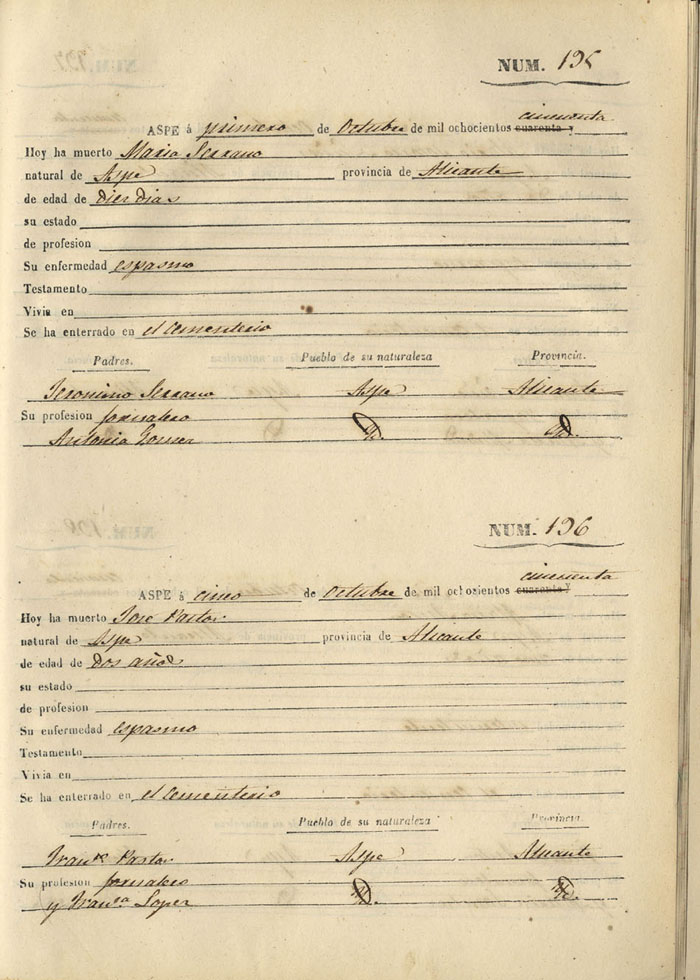 NUM. 195
cincuenta
ASPE á primero de Octubre de mil ochocientos cuarenta y
Hoy ha muerto Maria Serrano
natural de Aspe provincia de Alicante
de edad de diez dias
su estado
de profesion
Su enfermedad espasmo
Testamento
Vivia en
Se ha enterrado en el Cementerio
Padres. Pueblo de su naturaleza Provincia.
Jeronimo Serrano Aspe Alicante
Su profesion jornalero
Antonia Gomez Yd. Yd.
NUM. 196
cincuenta
ASPE á cinco de Octubre de mil ochosientos cuarenta y
Hoy ha muerto José Pastor
natural de Aspe provincia de Alicante
de edad de dos años
su estado
de profesion
Su enfermedad espasmo
Testamento
Vivia en
Se ha enterrado en el Cementerio
Padres. Pueblo de su naturaleza Provincia
Fran.co Pastor Aspe Alicante
Su profesion jornalero
y Fran.ca Lopez Yd. Yd.